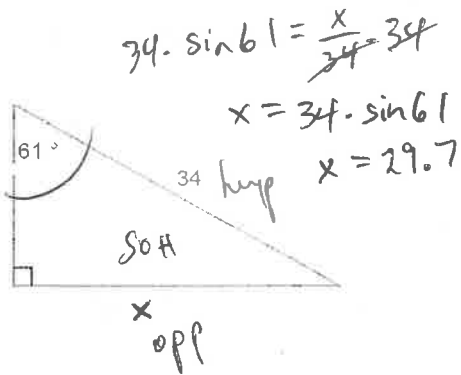 34. sin61 = x/34 . 34
x = 34. sin61
x = 29.7
61°
34 hyp
SOH
x
opp